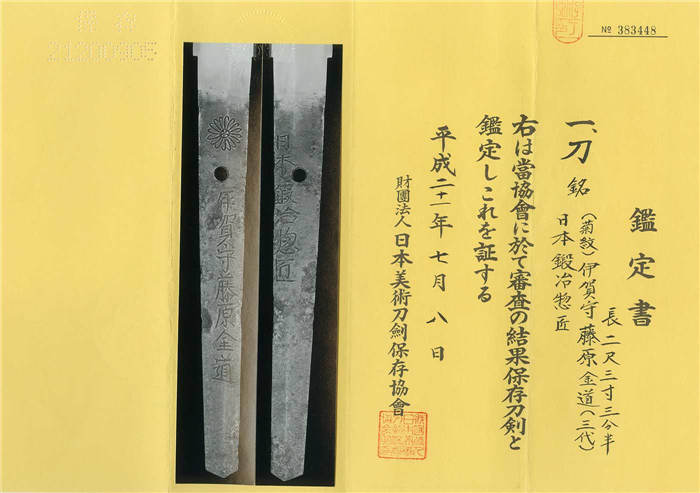 № 383448
鑑定書
一、刀 銘 (菊紋)伊賀守藤原金道(三代)
日本鍛冶惣匠
長 二尺三寸三分半
右は當協會に於て審査の結果保存刀剣と
鑑定しこれを証する
平成二十一年七月八日
財團法人 日本美術刀劍保存協會
日本鍛冶惣匠
伊賀守藤原金道